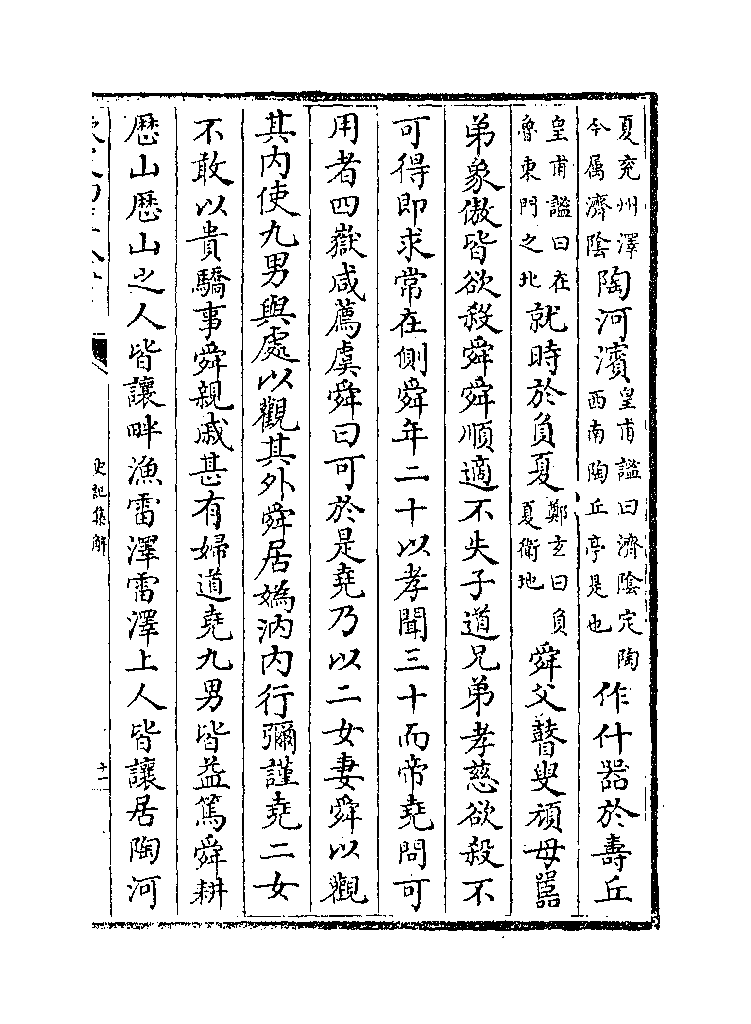 夏兖州澤今属濟陰陶河濱皇甫謐曰濟陰定陶西南陶丘亭是也作什器於壽丘
皇甫謐曰在魯東門之北就時於負夏鄭玄曰負夏衛地舜父瞽叟頑母嚚
弟象傲皆欲殺舜舜順適不失子道兄弟孝慈欲殺不
可得即求常在側舜年二十以孝聞三十而帝堯問可
用者四嶽咸薦虞舜曰可於是堯乃以二女妻舜以觀
其内使九男與處以觀其外舜居媯汭内行彌謹堯二女
不敢以貴驕事舜親戚甚有婦道堯九男皆益篤舜耕
歴山歴山之人皆讓畔漁雷澤雷澤上人皆讓居陶河
史記集解
十一